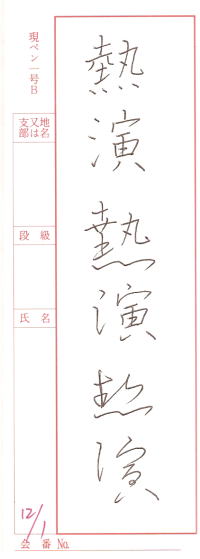 熱演熱演熱演
現ペン一号B
地名又は支部
段級
氏名
12/1
会番No.